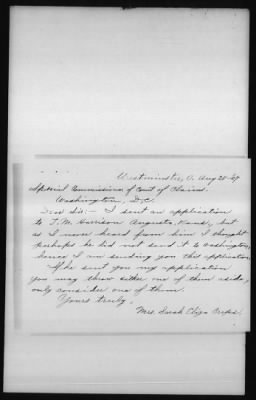 Westminster, O. Aug 28-07
Special Commissioner of Court of Claims.
Washington, D.C.
Dear Sir:- I sent an application
to T. M. Harrison Augusta, Kans., but
as I never heard from him I thought
perhaps he did not send it to Washington,
hence I am sending you this application.
If he sent you my application
you may throw either one of them aside,
only consider one of them.
Yours truly,
Mrs. Sarah Eliza